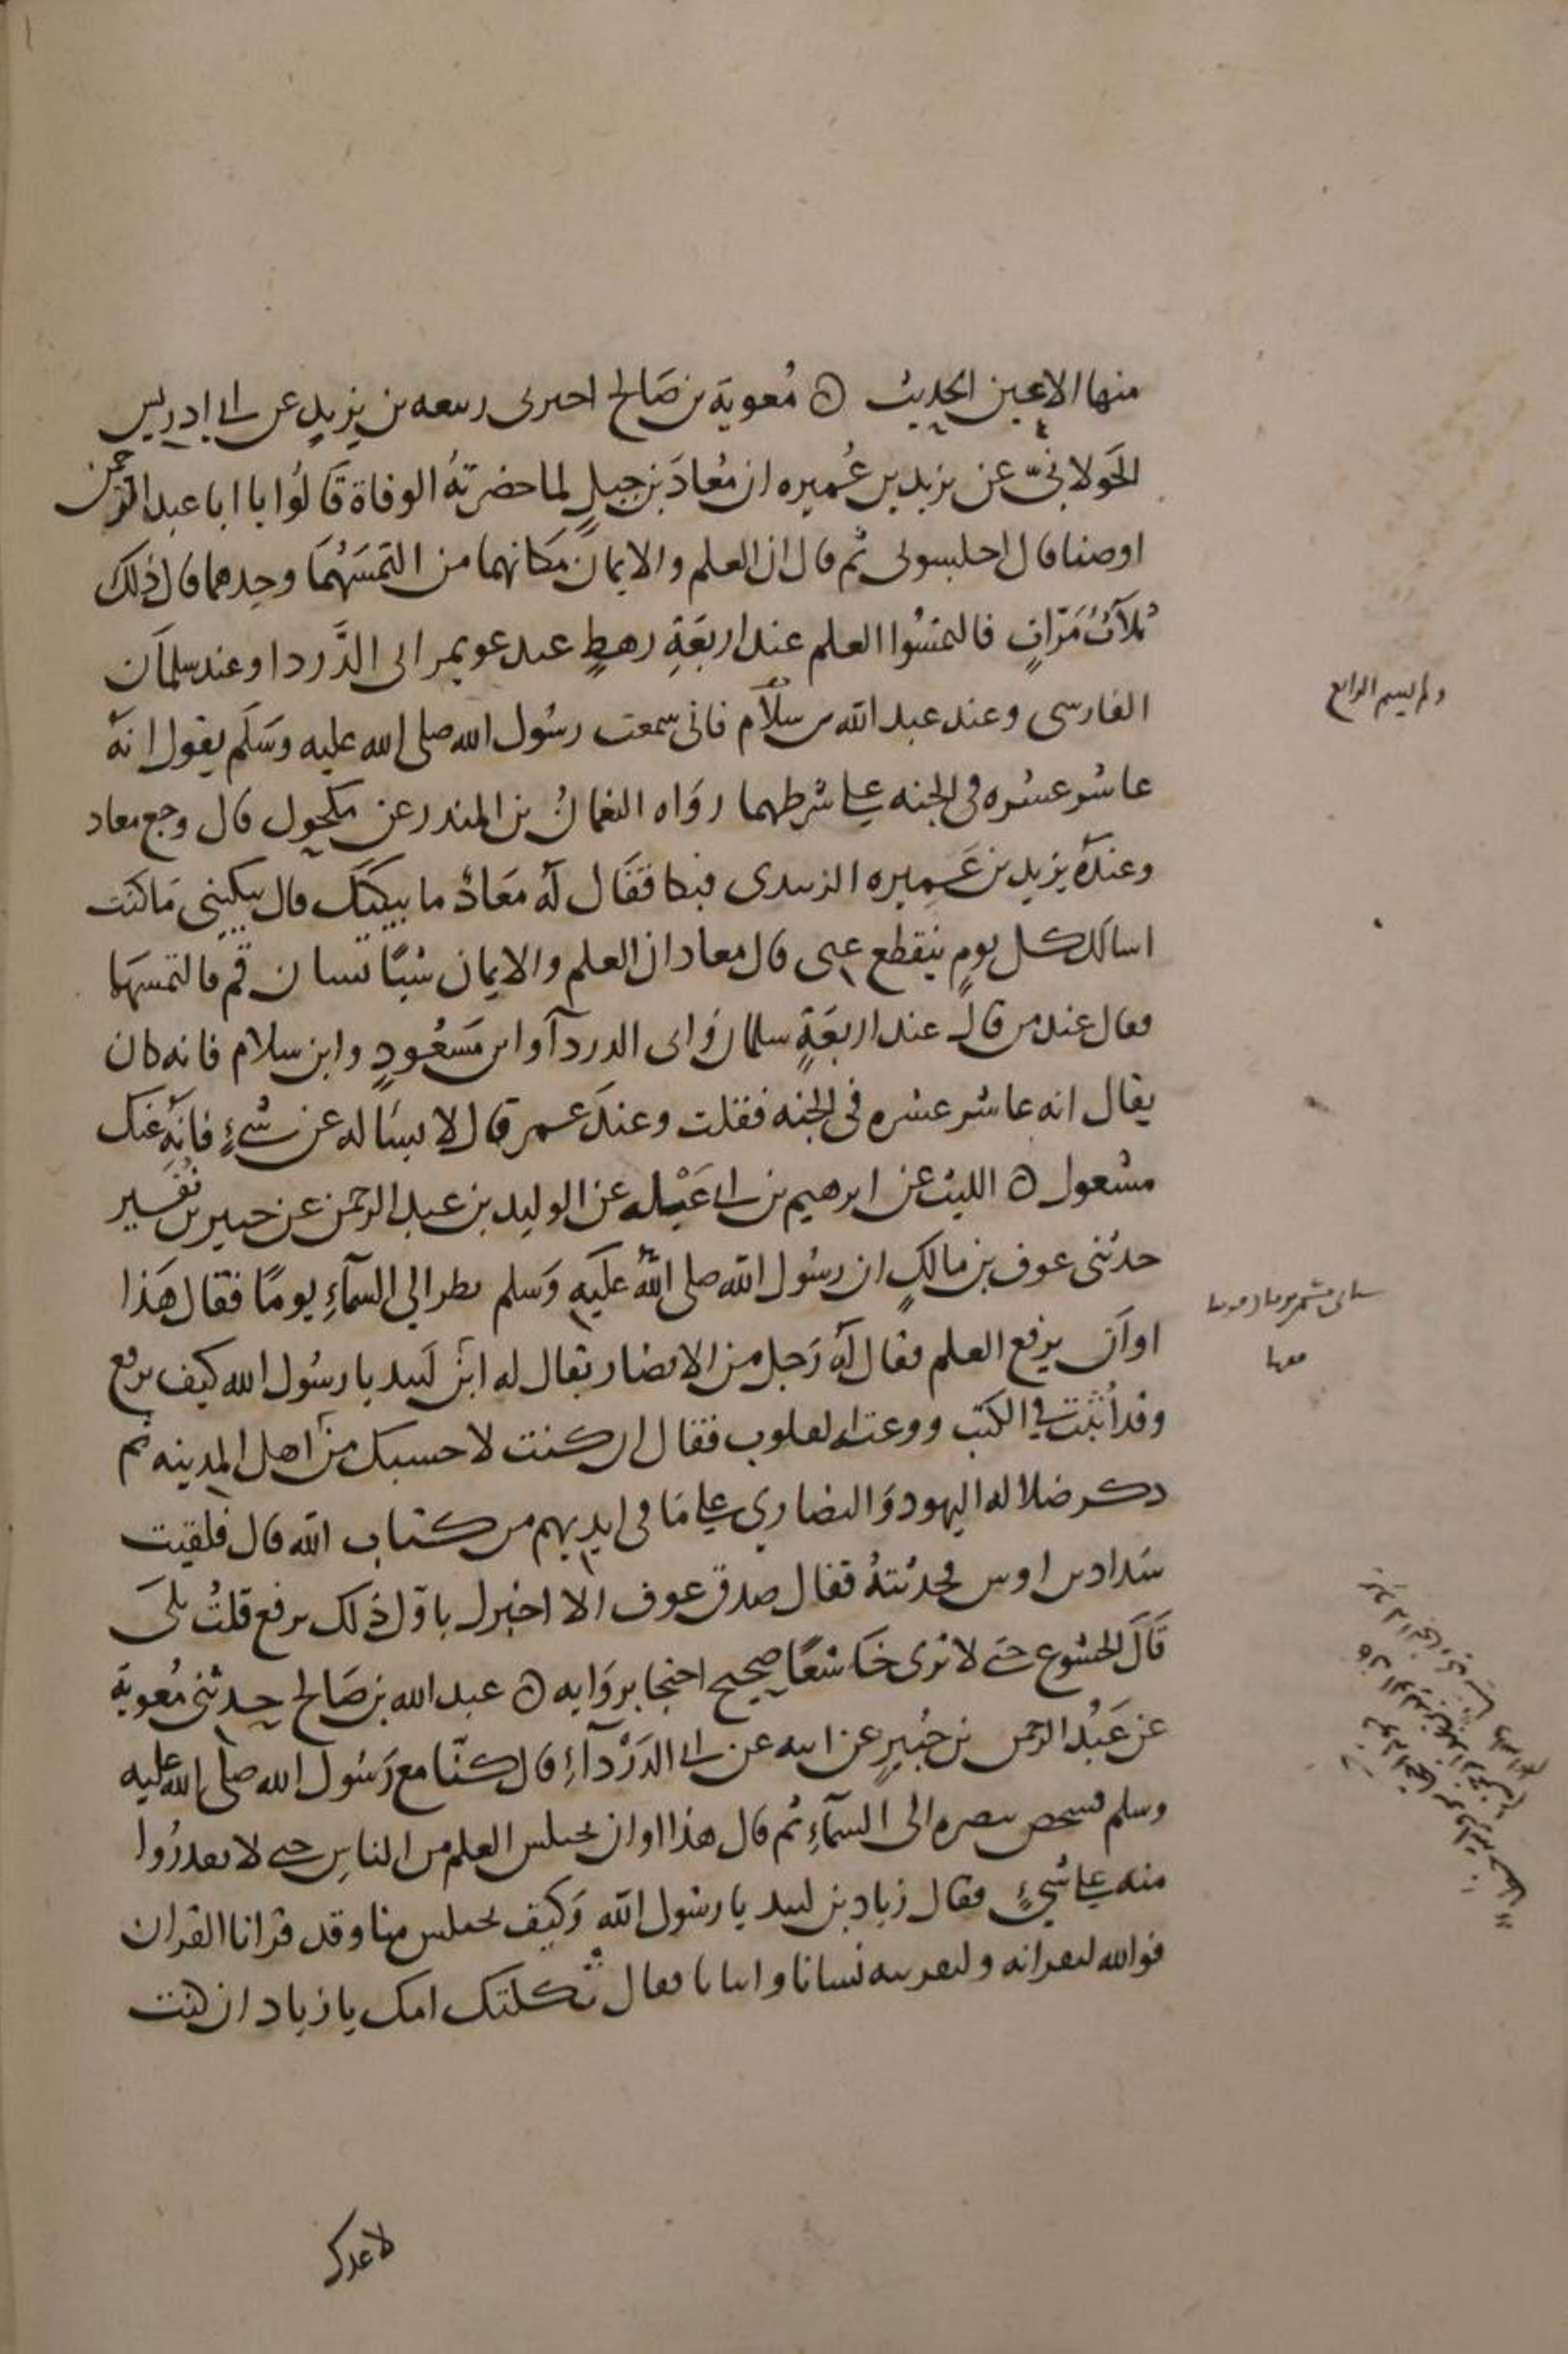 منها الاعين الحديث ه مُعوية بن صَالح اخبرنى ربيعه بن يزيدٍ عن ابى ادريس
الخَولانىّ عن يزيد بن عُميره ان مُعاذَ بن جبلٍ لما حضرتهُ الوفاة قَالُوا يا ابا عبد الرحمن
اوصنا قال اجلسونى ثم قال ان العلم والايمان مَكانهما من التمسَهُمَا وجدهما قال ذلك
ثلاثُ مَرّاتٍ فالتمسُوا العلم عند اربَعَةِ رهطٍ عند عويمر ابى الدَّردا وعند سلمَان
الفارسى وعند عبد الله بن سلَام فانى سمعت رسُول الله صلى الله عليه وسَلَم يقول انهُ
عاشر عشره فى الجنه على شرطهما روَاه النعمانُ بن المنذر عن مكحول قال وجع معاذ
وعندَهُ يزيد بن عَميره الزبيدى فبكا فقَال لَهُ مَعَاذُ ما يبكيَك قال يبكينى مَا كنت
اسالك كل يومٍ ينقطع عنى قال معاذ ان العلم والايمان شيًا نسيان قم فالتمسهَما
فقال عند من قال عند اربعَةٍ سلمان وَابى الدردآ وابن مَسعُودٍ وابن سلام فانه كان
يقال انه عاشر عشره فى الجنه فقلت وعندَ عمر قال لا يسَاله عن شىءٍ فانَه عنك
مشعول ه الليث عن ابرهيم بن ابى عَبْله عن الوليد بن عبد الرحمن عن جبير بن نُفَير
حدثنى عوف بن مالكٍ ان رسُول الله صلى اللهُ عليَه وَسلم نظر الى السمآءِ يومًا فقال هَذا
اوانَ يرفع العلم فقال لَهُ رَجل من الانصار يقال له ابن لَبيد يا رسُول الله كيف يرفع
وقد اُثبَت فى الكتب ووعته القلوب فقال ان كنت لاحسبك من اهل المدينه ثم
ذكر ضلاله اليهود وَالنصارى على مَا فى ايديهم من كتاب الله قال فلقيت
شداد بن اوس فحدثتهُ فقال صدق عوف الا اخبرك باوّل ذلك يرفع قلتُ بلىَ
قَالَ الخشوع حتى لا ترى خَاشعًا صحيح احتجا بروَايه ه عبد الله بن صَالح حدثنى مُعوية
عن عَبْد الرحمن بن جُبيرٍ عن ابيه عن ابى الدَرْدآءِ قال كنّا مع رَسُول الله صلى الله عليه
وسلم فشخص ببصره الى السمآءِ ثم قال هذا اوان يختلس العلم من الناسِ حتى لا يقدرُوا
منه على شىءٍ فقال زياد بن لبيد يا رسُول الله وَكيف يختلس منا وقد قرانا القران
فوالله لنقرانه ولنقرينه نسانا وابنانا فقال ثكلتك امك يا زياد ان كنت
ولم يسم الرابع
لاعدك